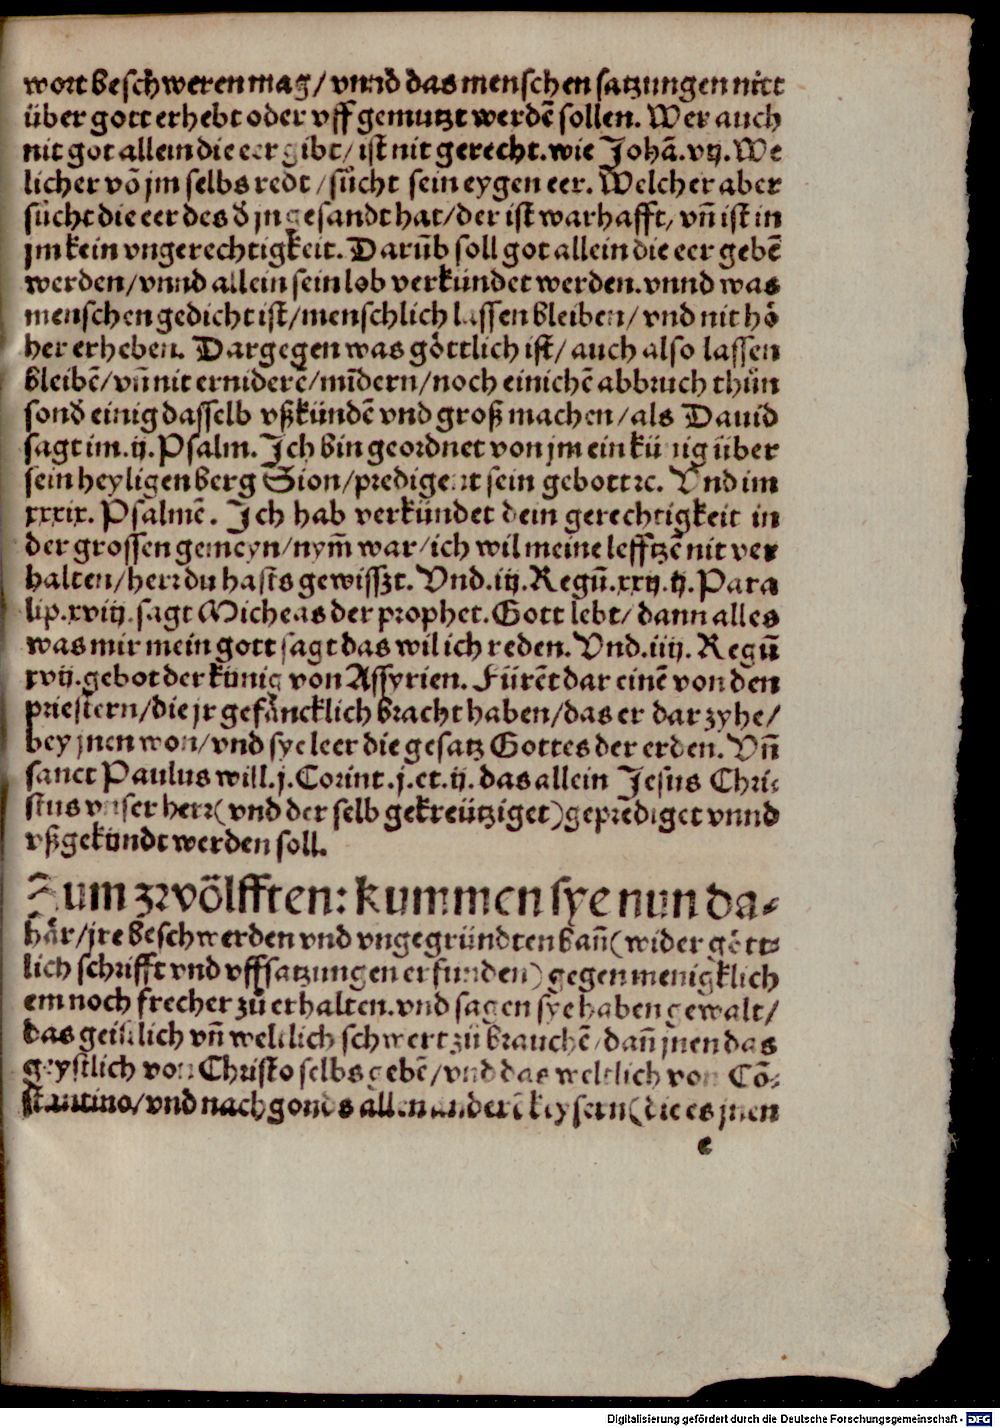 wort beschweren mag/ vnnd das menschen satzungen nitt
über gott erhebt oder vff gemutzt werdē sollen. Wer auch
nit got allein die eer gibt/ ist nit gerecht. wie Johā. vij. We
licher võ jm selbs redt/ sůcht sein eygen eer. Welcher aber
sůcht die eer des d̕ jn gesandt hat/ der ist warhafft/ vñ ist in
jm kein vngerechtigkeit. Darũb soll got allein die eer gebē
werden/ vnnd allein sein lob verkündet werden. vnnd was
menschen gedicht ist/ menschlich lassen bleiben/ vnd nit hö
her erheben. Dargegen was göttlich ist/ auch also lassen
bleibē/ vñ nit erniderē/ mīdern/ noch einichē abbruch thůn
sond̕ einig dasselb vßkündē vnd groß machen/ als Dauid
sagt im. ij. Psalm. Ich bin geordnet von jm ein künig über
sein heyligen berg Sion/ predigent sein gebott ꝛc. Vnd im
xxxix. Psalmē. Ich hab verkündet dein gerechtigkeit in
der grossen gemeyn/ nym̃ war/ ich wil meine lefftzē nit ver
halten/ herr du hasts gewisszt. Vnd. iij. Regũ. xxij. ij. Para
lip. xviij. sagt Micheas der prophet. Gott lebt/ dann alles
was mir mein gott sagt das wil ich reden. Vnd. iiij. Regũ
xvij. gebot der künig von Assyrien. Fürēt dar einē von den
priestern/ die jr gefäncklich bracht haben/ das er dar zyhe/
bey jnen won/ vnd sye leer die gesatz Gottes der erden. Vñ
sanct Paulus will. j. Corint. j. et. ij. das allein Jesus Chri-
stus vnser herr (vnd der selb gekreütziget) geprediget vnnd
vßgekündt werden soll.
Zum zwölfften: kummen sye nun da-
här/ jre beschwerden vnd vngegründten bañ (wider gött-
lich schrifft vnd vffsatzungen erfunden) gegen menigklich
em noch frecher zů erhalten. vnd sagen sye haben gewalt/
das geistlich vñ weltlich schwert zů brauchē/ dañ jnen das
geystlich von Christo selbs gebē/ vnd das weltlich von Cõ-
stantino/ vnd nachgonds allen anderē keysern (die es jnen
e
Digitalisierung gefördert durch die Deutsche Forschungsgemeinschaft - DFG